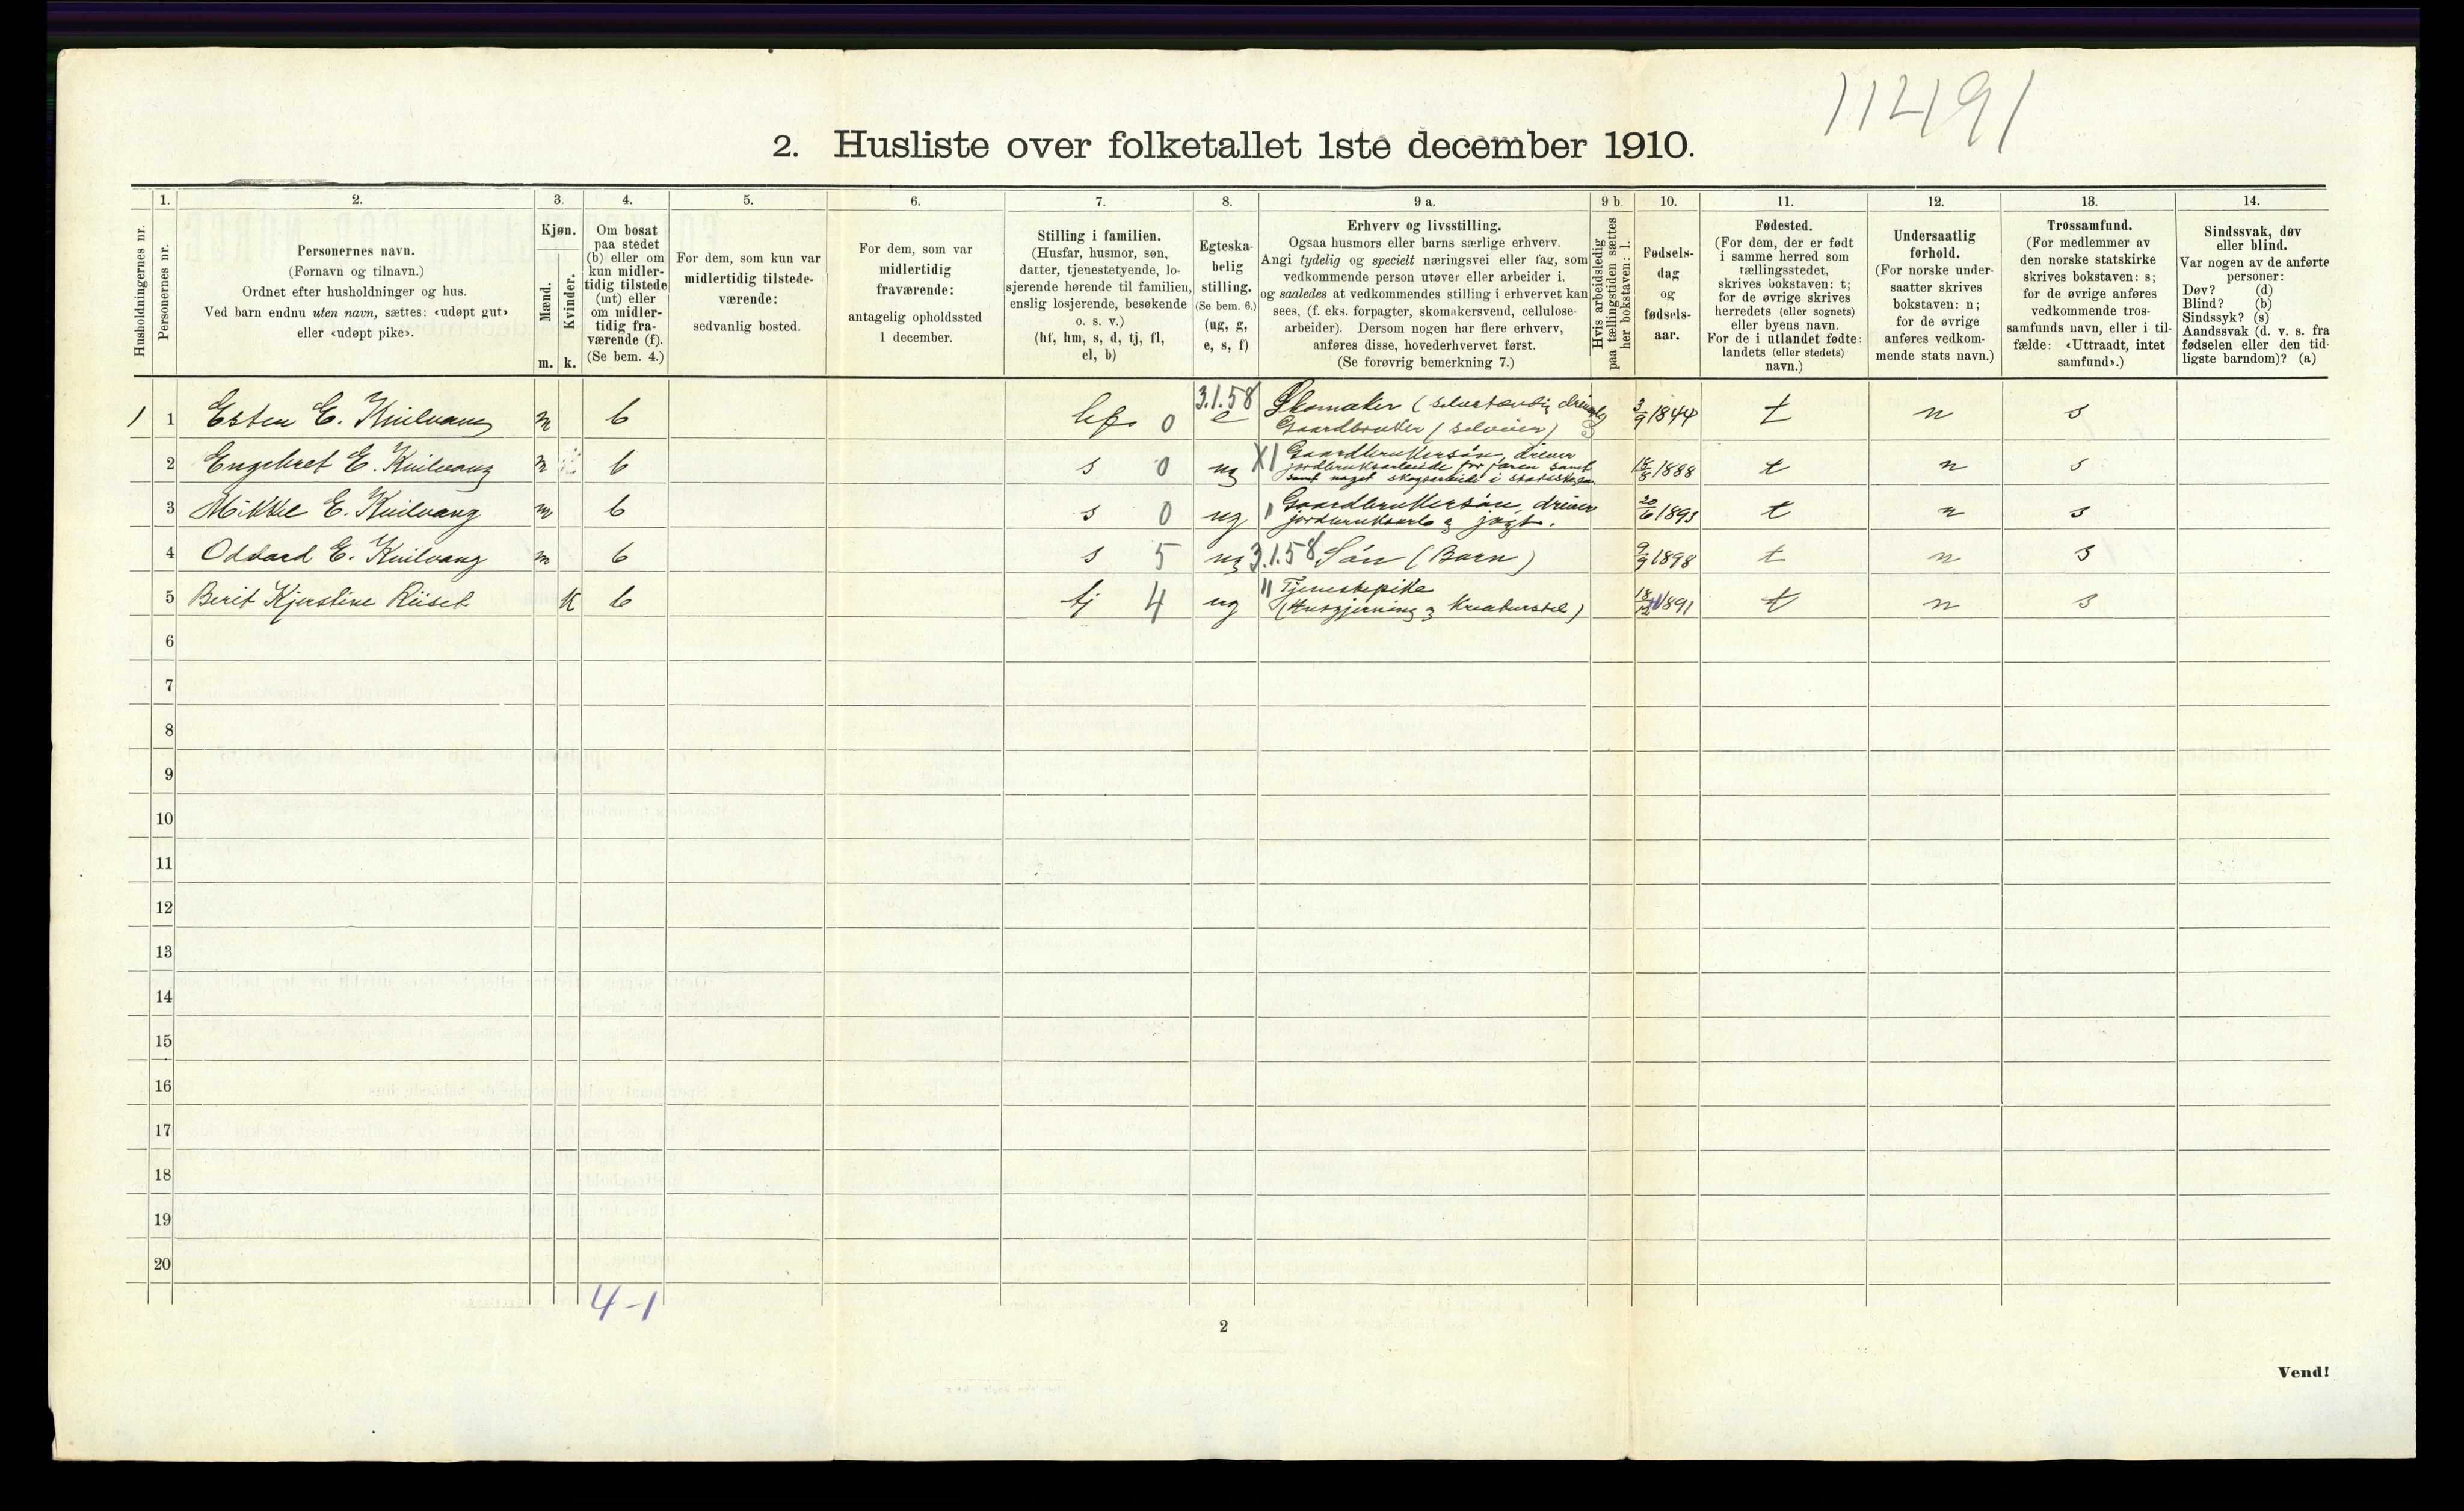 11491
2. Husliste over folketallet 1ste december 1910.
1. 2. 3. 4. 5. 6. 7. 8. 9 a. 9 b. 10. 11. 12. 13. 14.
Husholdningernes nr.
Personernes nr.
Personernes navn.
(Fornavn og tilnavn.)
Ordnet efter husholdninger og hus.
Ved barn endnu uten navn, sættes: «udøpt gut»
eller «udøpt pike».
Kjøn.
Mænd.
Kvinder.
m. k.
Om bosat
paa stedet
(b) eller om
kun midler-
tidig tilstede
(mt) eller
om midler-
tidig fra-
værende (f).
(Se bem. 4.)
For dem, som kun var
midlertidig tilstede-
værende:
sedvanlig bosted.
For dem, som var
midlertidig
fraværende:
antagelig opholdssted
1 december.
Stilling i familien.
(Husfar, husmor, søn,
datter, tjenestetyende, lo-
sjerende hørende til familien,
enslig losjerende, besøkende
o. s. v.)
(hf, hm, s, d, tj, fl,
el, b)
Egteska-
belig
stilling.
(Se bem. 6.)
(ug, g,
e, s, f)
Erhverv og livsstilling.
Ogsaa husmors eller barns særlige erhverv.
Angi tydelig og specielt næringsvei eller fag, som
vedkommende person utøver eller arbeider i,
og saaledes at vedkommendes stilling i erhvervet kan
sees, (f. eks. forpagter, skomakersvend, cellulose-
arbeider). Dersom nogen har flere erhverv,
anføres disse, hovederhvervet først.
(Se forøvrig bemerkning 7.)
Hvis arbeidsledig
paa tællingstiden sættes
her bokstaven: l.
Fødsels-
dag
og
fødsels-
aar.
Fødested.
(For dem, der er født
i samme herred som
tællingsstedet,
skrives bokstaven: t;
for de øvrige skrives
herredets (eller sognets)
eller byens navn.
For de i utlandet fødte:
landets (eller stedets)
navn.)
Undersaatlig
forhold.
(For norske under-
saatter skrives
bokstaven: n;
for de øvrige
anføres vedkom-
mende stats navn.)
Trossamfund.
(For medlemmer av
den norske statskirke
skrives bokstaven: s;
for de øvrige anføres
vedkommende tros-
samfunds navn, eller i til-
fælde: «Uttraadt, intet
samfund».)
Sindssvak, døv
eller blind.
Var nogen av de anførte
personer:
Døv? (d)
Blind? (b)
Sindssyk? (s)
Aandssvak (d. v. s. fra
fødselen eller den tid-
ligste barndom)? (a)
1 1 Esten E. Kuilvang m b hf. 0 3.1.58 e Skomaker (selvstændig
Gaardbruker (selveier) 3/9 1844 t n s
2 Engebret E. Kuilvang m b s 0 ug X1 Gaardbrukersøn, driver
jordbruksarbeide for faren samt
samt noget skogsarbeide i 1888 t n s
3 Mikkel E. Kuilvang m b s 0 ug " Gaardbrukersøn, driver
jordbruksarb og jagt. 20/6 1893 t n s
4 Oddvard E. Kuilvang m b s 5 ug 3.1.58 Søn (Barn) 9/9 1898 t n s
5 Berit Kjerstine Riiset k b tj 4 ug " Tjenestepike
(Husgjerning og Kreaturstel) 1891 t n s
6
7
8
9
10
11
12
13
14
15
16
17
18
19
20
4-1
2
Vend!